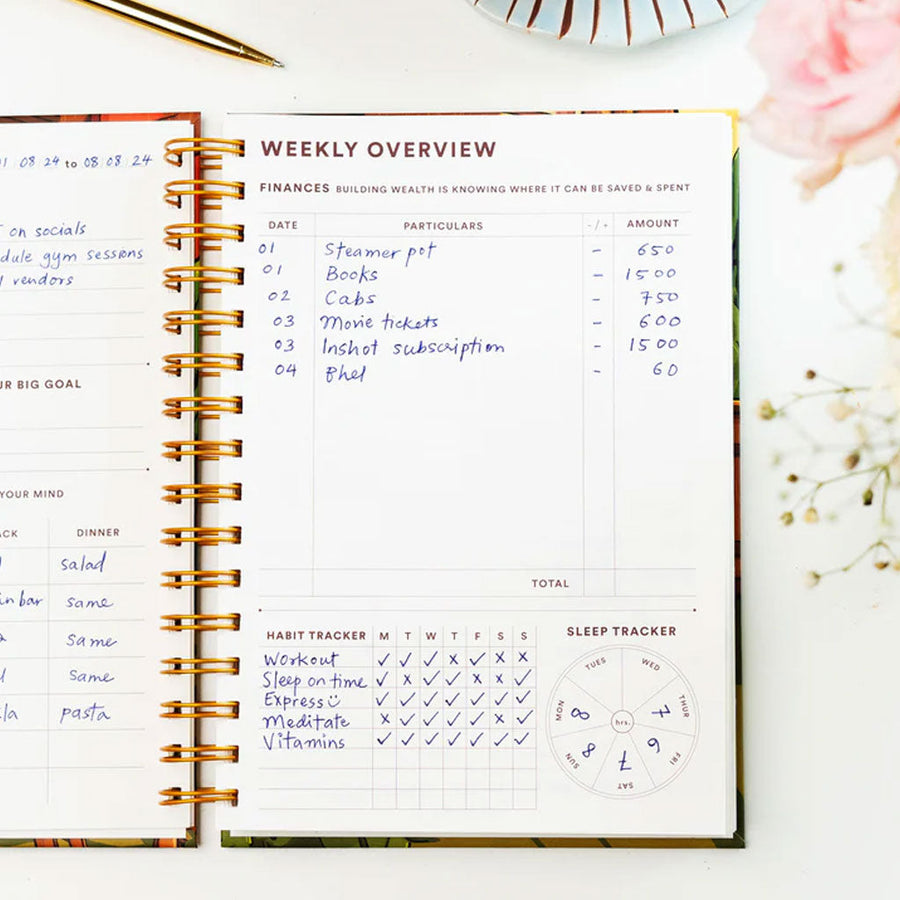 01 08 24 to 08 08 24
T on socials
dule gym sessions
l vendors
UR BIG GOAL
YOUR MIND
ACK DINNER
salad
in bar same
same
same
la pasta
WEEKLY OVERVIEW
FINANCES BUILDING WEALTH IS KNOWING WHERE IT CAN BE SAVED & SPENT
DATE PARTICULARS - / + AMOUNT
01 Steamer pot - 650
01 Books - 1500
02 Cabs - 750
03 Movie tickets - 600
03 Inshot subscription - 1500
04 Bhel - 60
TOTAL
HABIT TRACKER M T W T F S S
Workout ✓ ✓ ✓ x ✓ x x
Sleep on time ✓ x ✓ ✓ x x ✓
Express ☺ ✓ ✓ ✓ ✓ ✓ ✓ ✓
Meditate x ✓ ✓ ✓ ✓ x ✓
Vitamins ✓ ✓ ✓ ✓ ✓ ✓ ✓
SLEEP TRACKER
TUES
WED
THUR 7
FRI 6
SAT 7
SUN 8
MON 8
hrs.